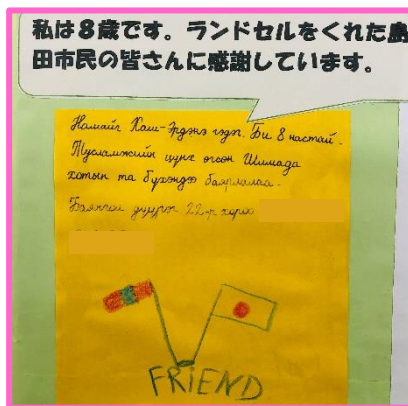 私は8歳です。ランドセルをくれた島
田市民の皆さんに感謝しています。
Намайг Хаш-Эрдэнэ гэдэг. Би 8 настай.
Тусламжийн цүнх өгсөн Шимада
хотын та бүхэндээ баярлалаа.
Баянгол дүүрэг 22-р хороо
FRIEND